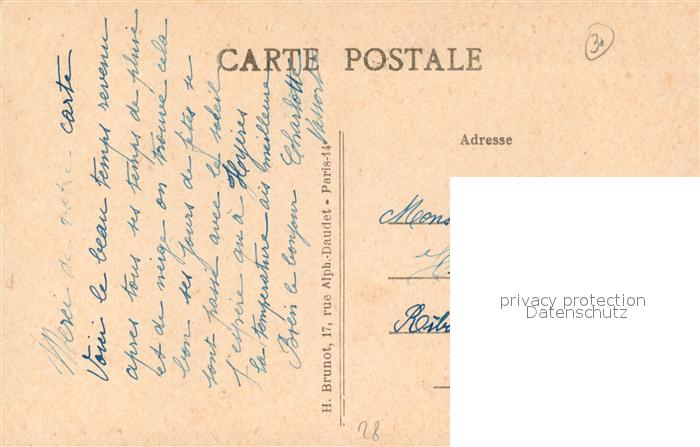 CARTE POSTALE
30
Adresse
Merci de votre carte
Voici le beau temps revenu
apres tous ses temps de pluie
et de neige on trouve cela
bon ses jours de fêtes se
sont passé avec le soleil
J'espère qu'à Hyères
la temperature ais meilleure
Bien le bonjour Charlotte
H. Brunot, 17, rue Alph.-Daudet - Paris-14
Mons
Rib
privacy protection
Datenschutz
28